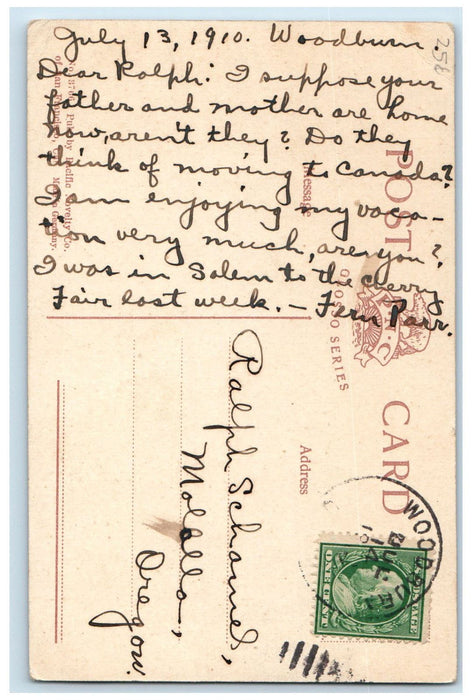 July 13, 1910. Woodburn.
Dear Ralph: I suppose your
father and mother are home
now, aren't they? Do they
think of moving to Canada?
I am enjoying my vaca-
tion very much, are you?
I was in Salem to the cherry
Fair last week. — Fern Parr.
258
Pub. by Pacific Novelty Co.
Germany.
POST CARD
Message
SERIES
Address
Ralph
Molalla,
Oregon.
WOODBU
JUL
14
ONE CENT